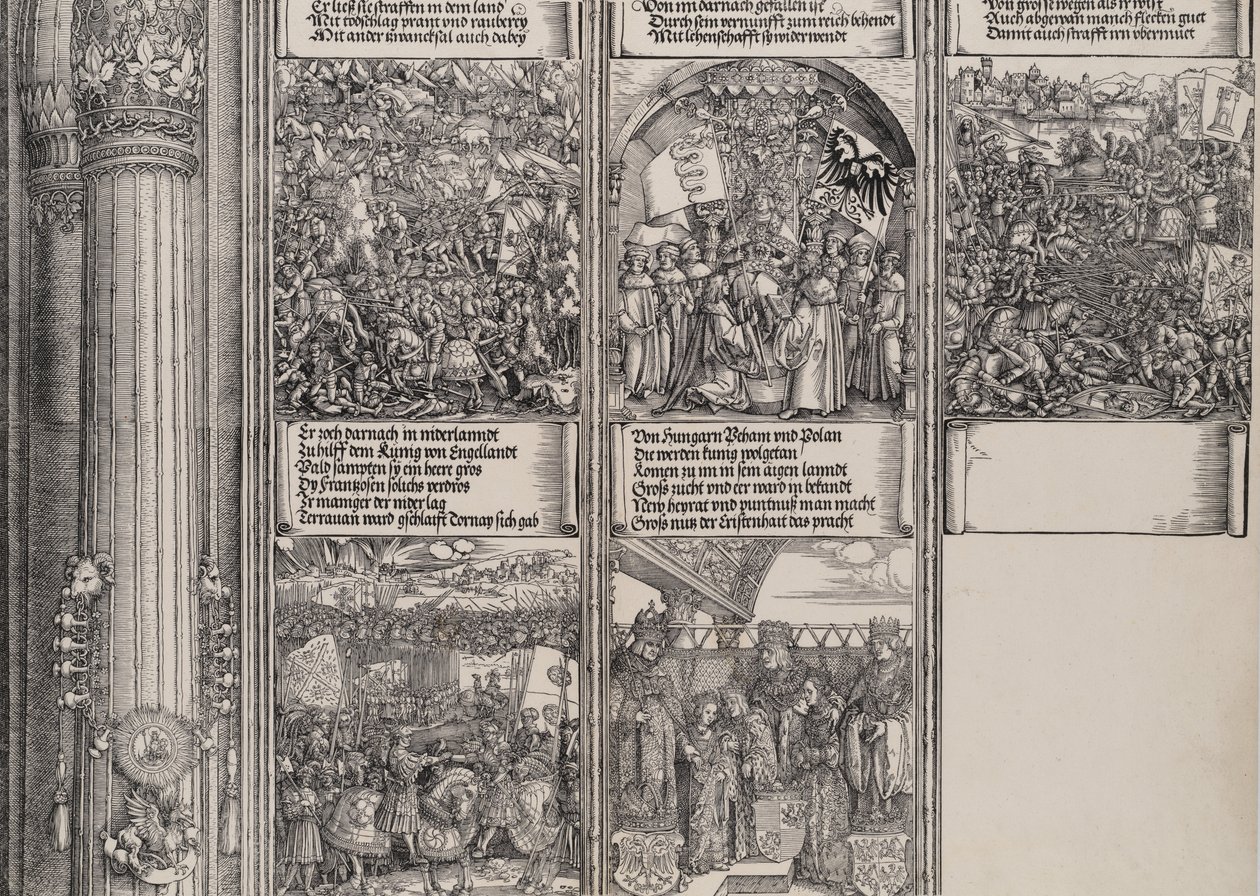 Er ließ sie straffen in dem land
Mit todschlag prant vnd rauberey
Mit ander zwancksal auch dabey
Von im darnach gefallen ist
Durch sein vernunfft zum reich behendt
Mit lehenschafft sy widerwendt
Von grosse wegen als ir wist
Auch abgewan manch flecken guet
Damit auch strafft irn vbermuet
Er zoch darnach in niderlanndt
Zu hilff dem Künig von Engellandt
Pald sampten sy ein heere gros
Dy Frantzosen solichs verdros
Ir mainiger der nider lag
Terrauan ward gschlaift Tornay sich gab
Von Hungarn Peham vnd Polan
Die werden kunig wolgetan
Komen zu im in sein aigen lanndt
Gross zucht vnd eer ward in bekandt
New heyrat vnd puntnuß man macht
Gross nutz der Cristenhait das pracht